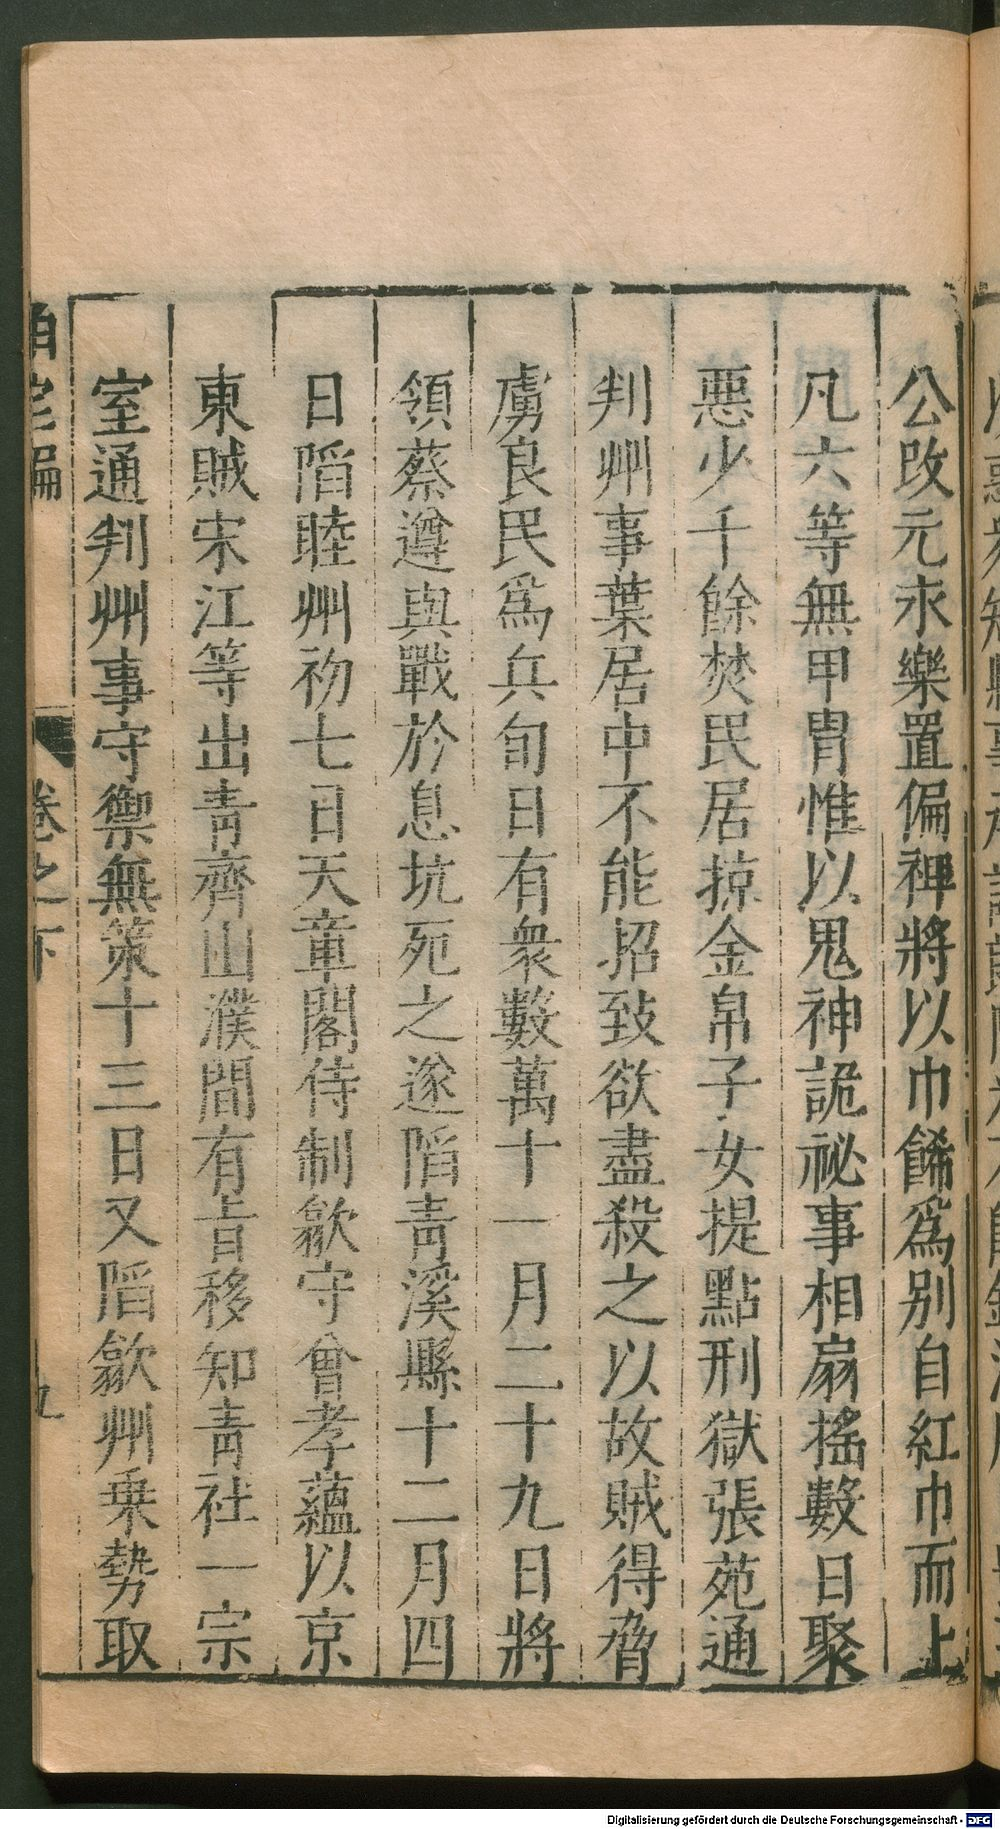 公改元永樂置偏裨將以巾餙爲別自紅巾而上
凡六等無甲冑惟以鬼神詭祕事相扇搖數日聚
惡少千餘焚民居掠金帛子女提點刑獄張苑通
判州事葉居中不能招致欲盡殺之以故賊得脅
虜良民爲兵旬日有衆數萬十一月二十九日將
領蔡遵與戰於息坑死之遂陷青溪縣十二月四
日陷睦州初七日天章閣侍制歙守曾孝蘊以京
東賊宋江等出青齊山濮間有旨移知青社一宗
室通判州事守禦無策十三日又陷歙州乗勢取
泊宅編
卷之下
九
Digitalisierung gefördert durch die Deutsche Forschungsgemeinschaft - DFG